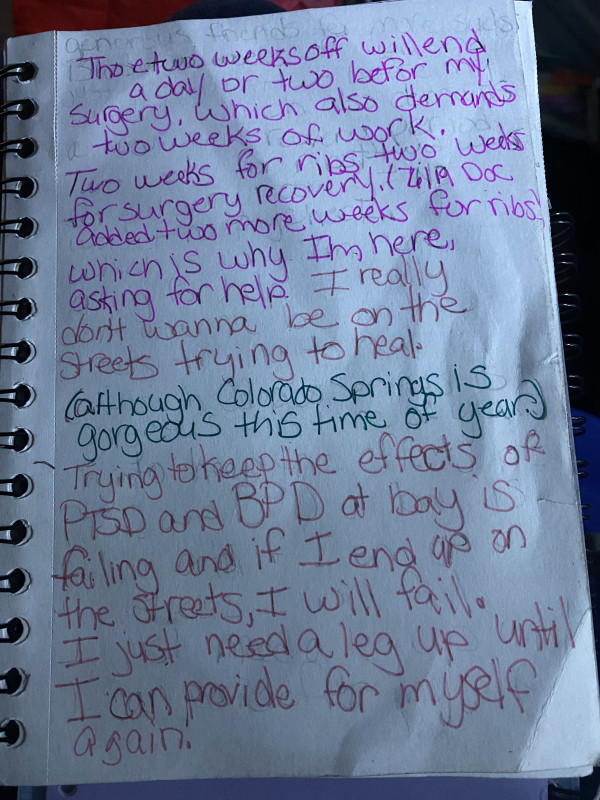 Thoe two weeks off will end
a day or two befor my
surgery, which also demands
two weeks of work.
Two weeks for ribs, two weeks
for surgery recovery. Doc
added two more weeks for ribs,
which is why I'm here,
asking for help. I really
don't wanna be on the
streets trying to heal.
(although Colorado Springs is
gorgeous this time of year.)
Trying to keep the effects of
PTSD and BPD at bay is
failing and if I end up on
the streets, I will fail.
I just need a leg up until
I can provide for myself
again.